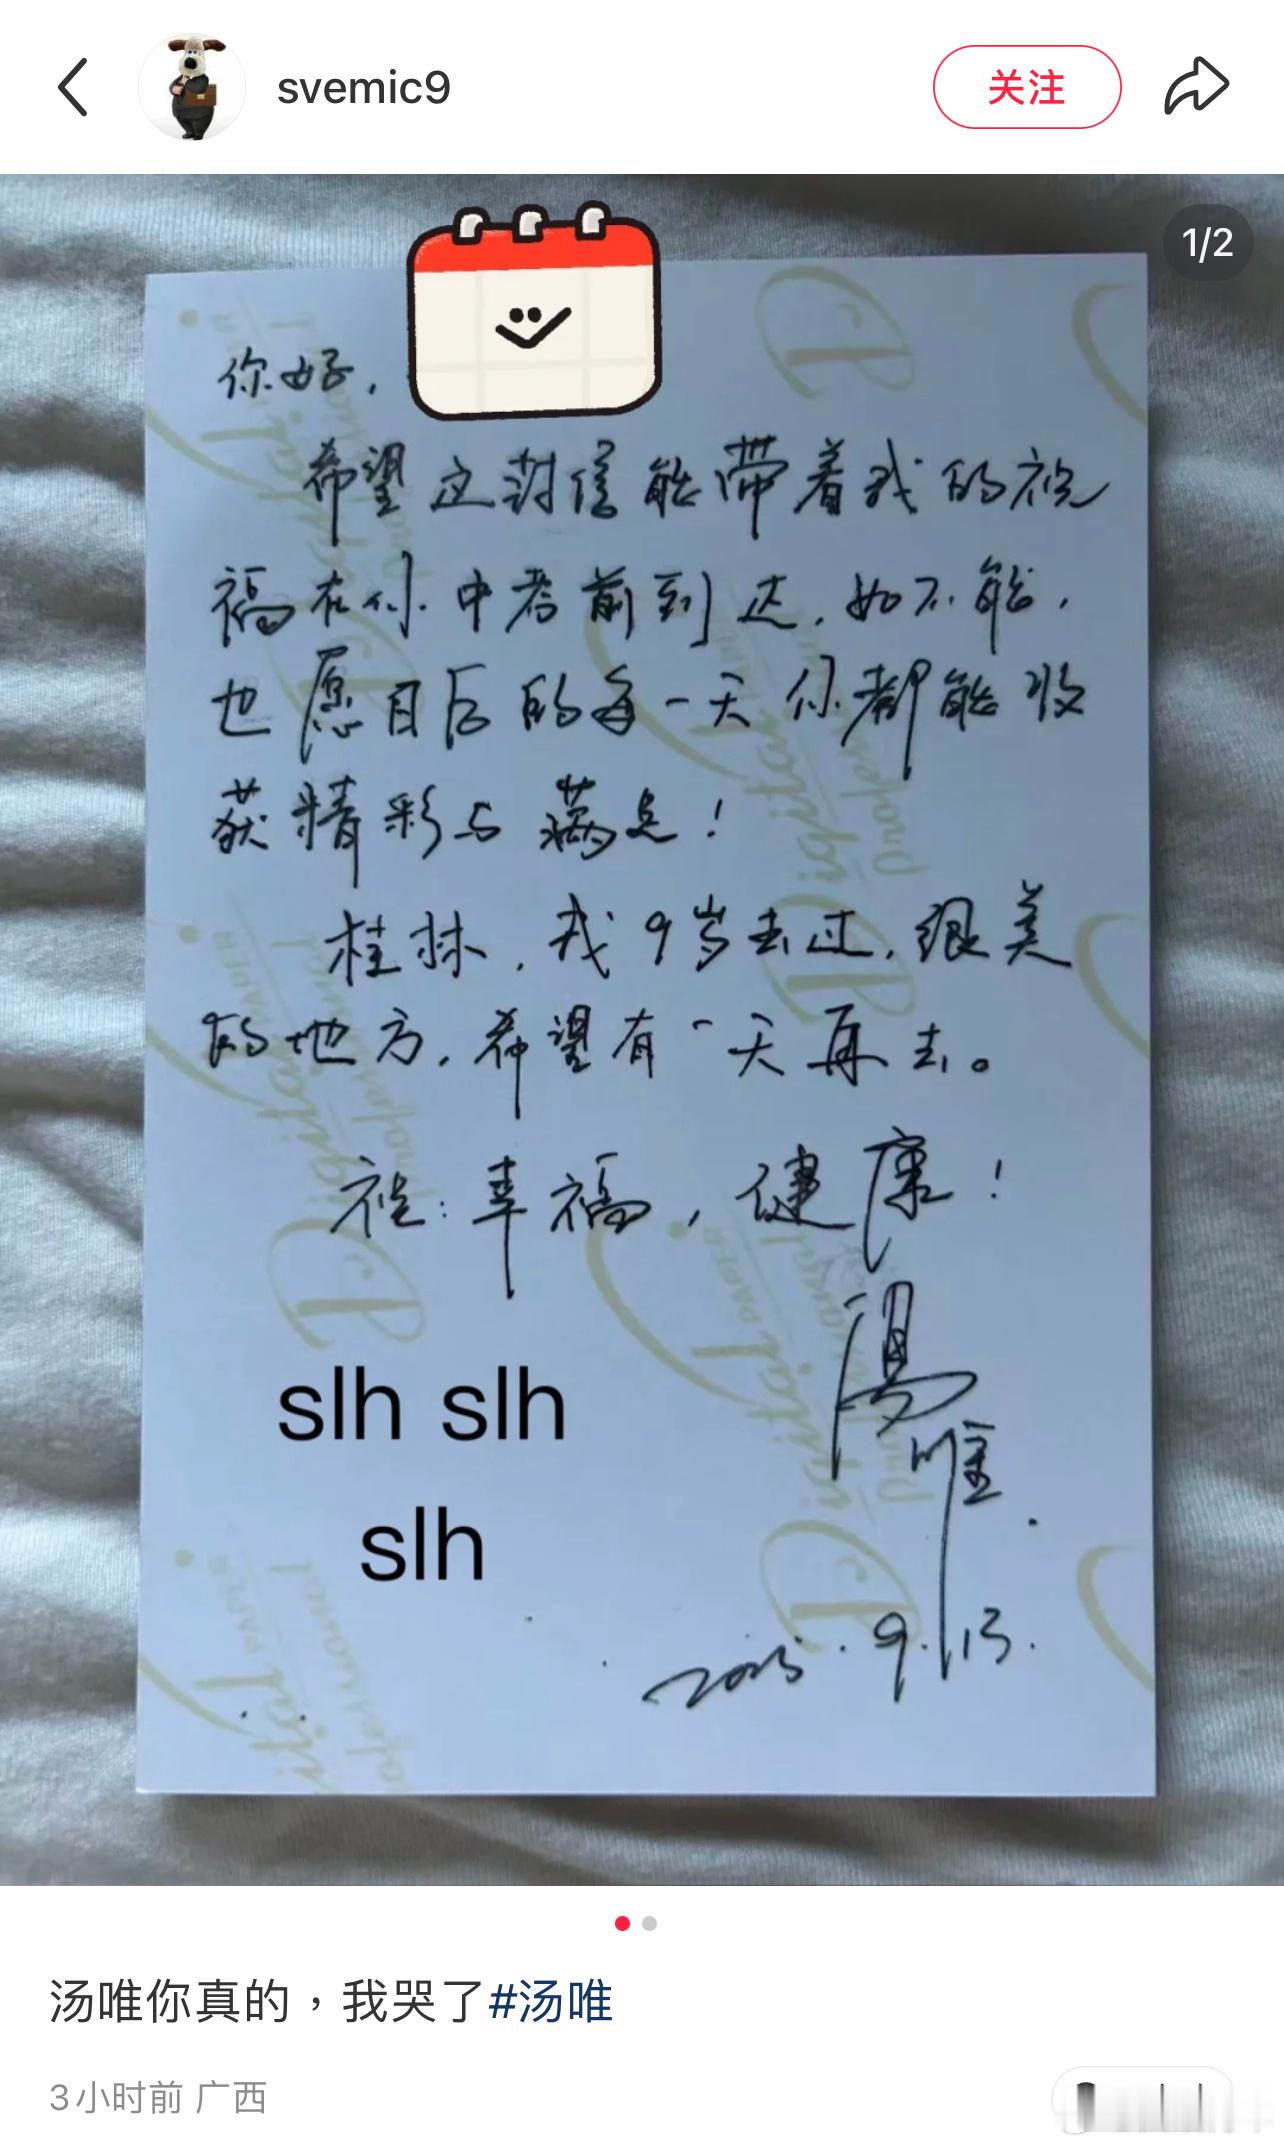 svemic9
关注
1/2
你好,
希望这封信能带着我的祝
福在你中考前到达,如不能,
也愿日后的每一天你都能收
获精彩与满足!
桂林,我9岁去过,很美
的地方,希望有一天再去。
祝:幸福,健康!
湯
唯.
2025.9.13.
slh slh
slh
汤唯你真的，我哭了#汤唯
3小时前 广西